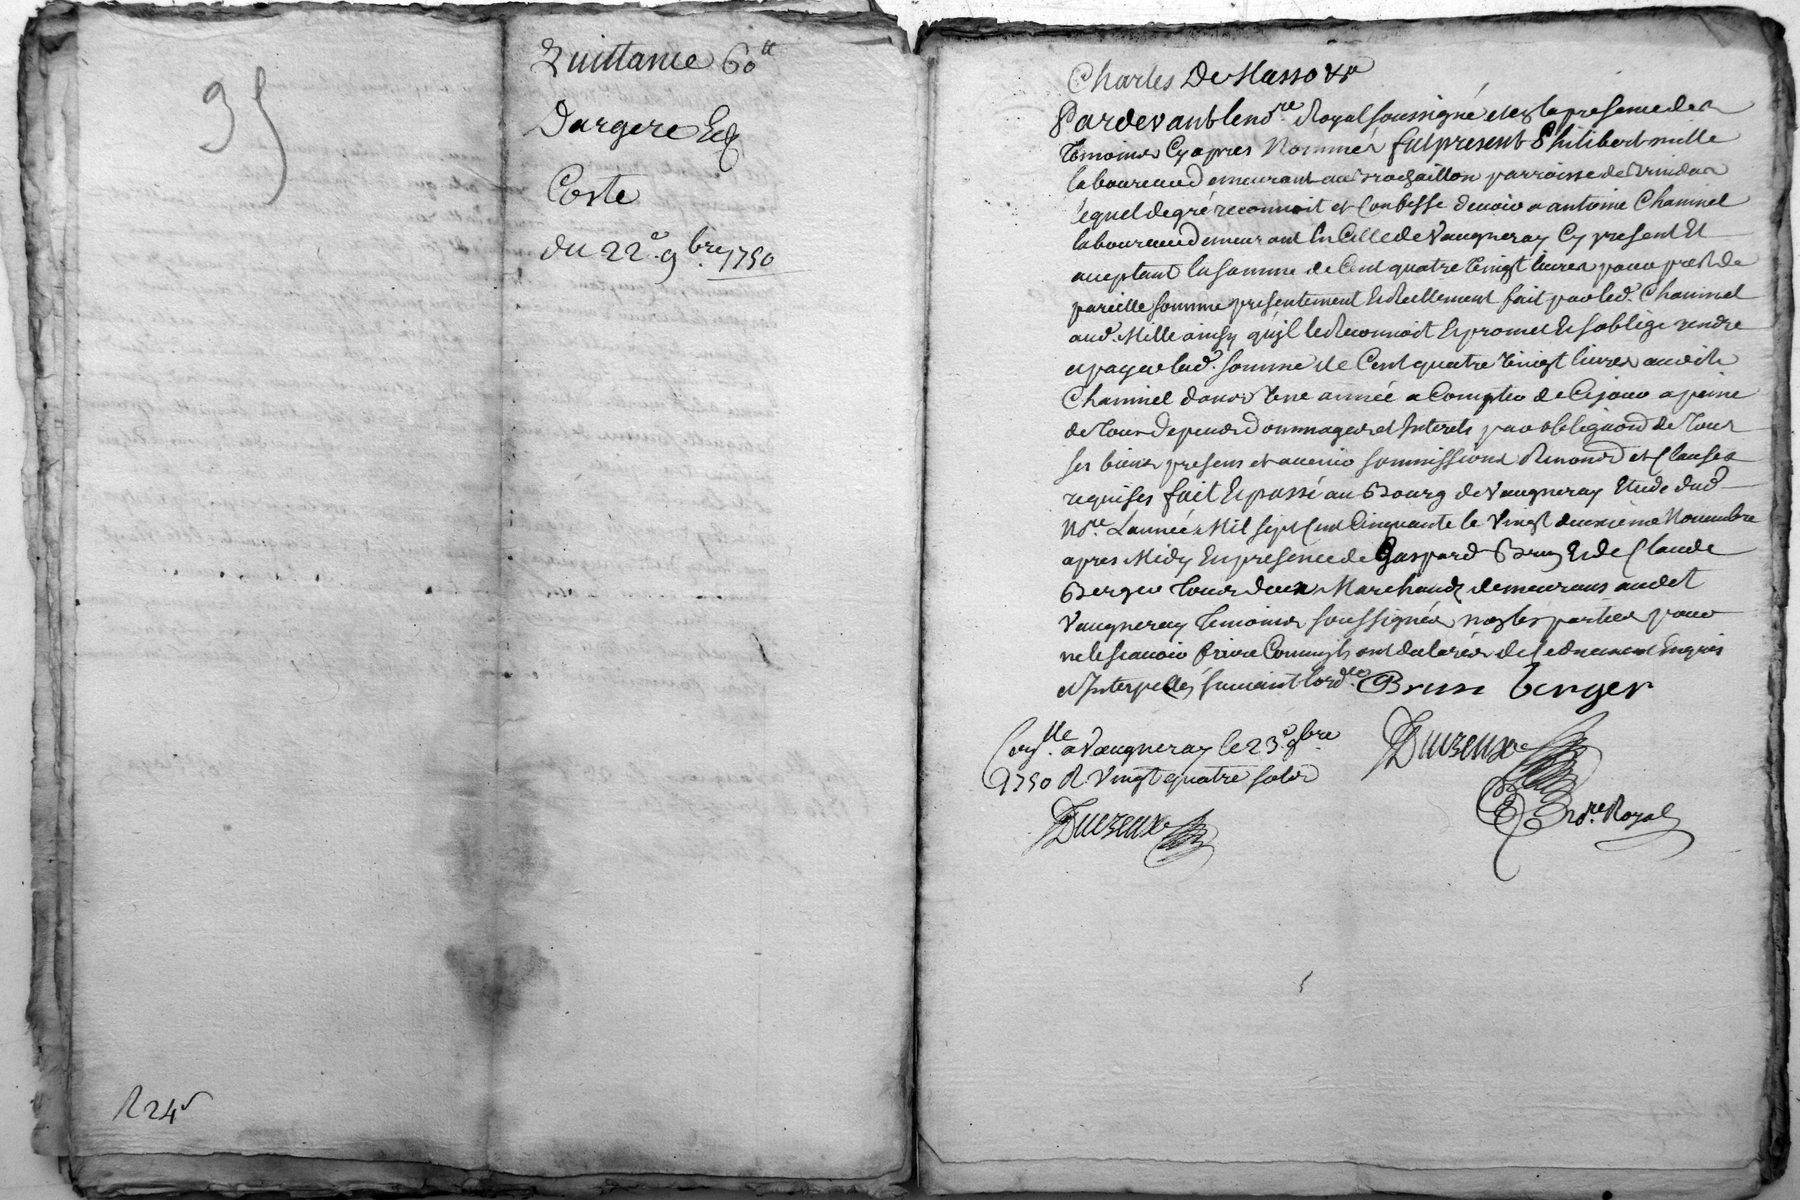 95
Quittance 60ᵗᵗ
Dargere Et
Coste
du 22ᵉ 9bre 1750
R 24ˢ
Charles De Masso &ra
Pardevant le nore Royal soussigné et en la presence des
temoins Cy apres Nommés fut present Philibert mille
laboureur demeurant au parroisse de Brindas
lequel de gré reconnoit et Confesse devoir a antoine Chaninel
laboureur demeurant En Celle de Vaugneray Cy present Et
aceptant la somme de Cent quatre Vingt livres pour prest de
pareille somme presentement Et Reellement fait par led. Chaninel
aud. Mille ainsy qu'jl le Reconnoit Et promet Et s'oblige rendre
et payer lad. somme de Cent quatre Vingt livres audit
Chaninel dans Une année a Compter de Ce jour a peine
de tous depends dommages et Interets par obligaōn de tous
ses biens presens et avenir soumissions Renonōn et Clauses
requises fait Et passé au Bourg de Vaugneray Etude dud
Nore L'année Mil sept Cent Cinquante le Vingt deuxieme Novembre
apres Midy En presence de Gaspard Brun Et de Claude
Berger tous deux Marchands demeurans audit
Vaugneray temoins soussignés non les parties pour
ne le scavoir faire Comme jls ont declarés de ce Enquis
et Interpellés suivant lordce Brun berger
Conlle a Vaugneray le 23e 9bre
1750 R Vingt quatre sols
Ducreux
Ducreux
nore Royal